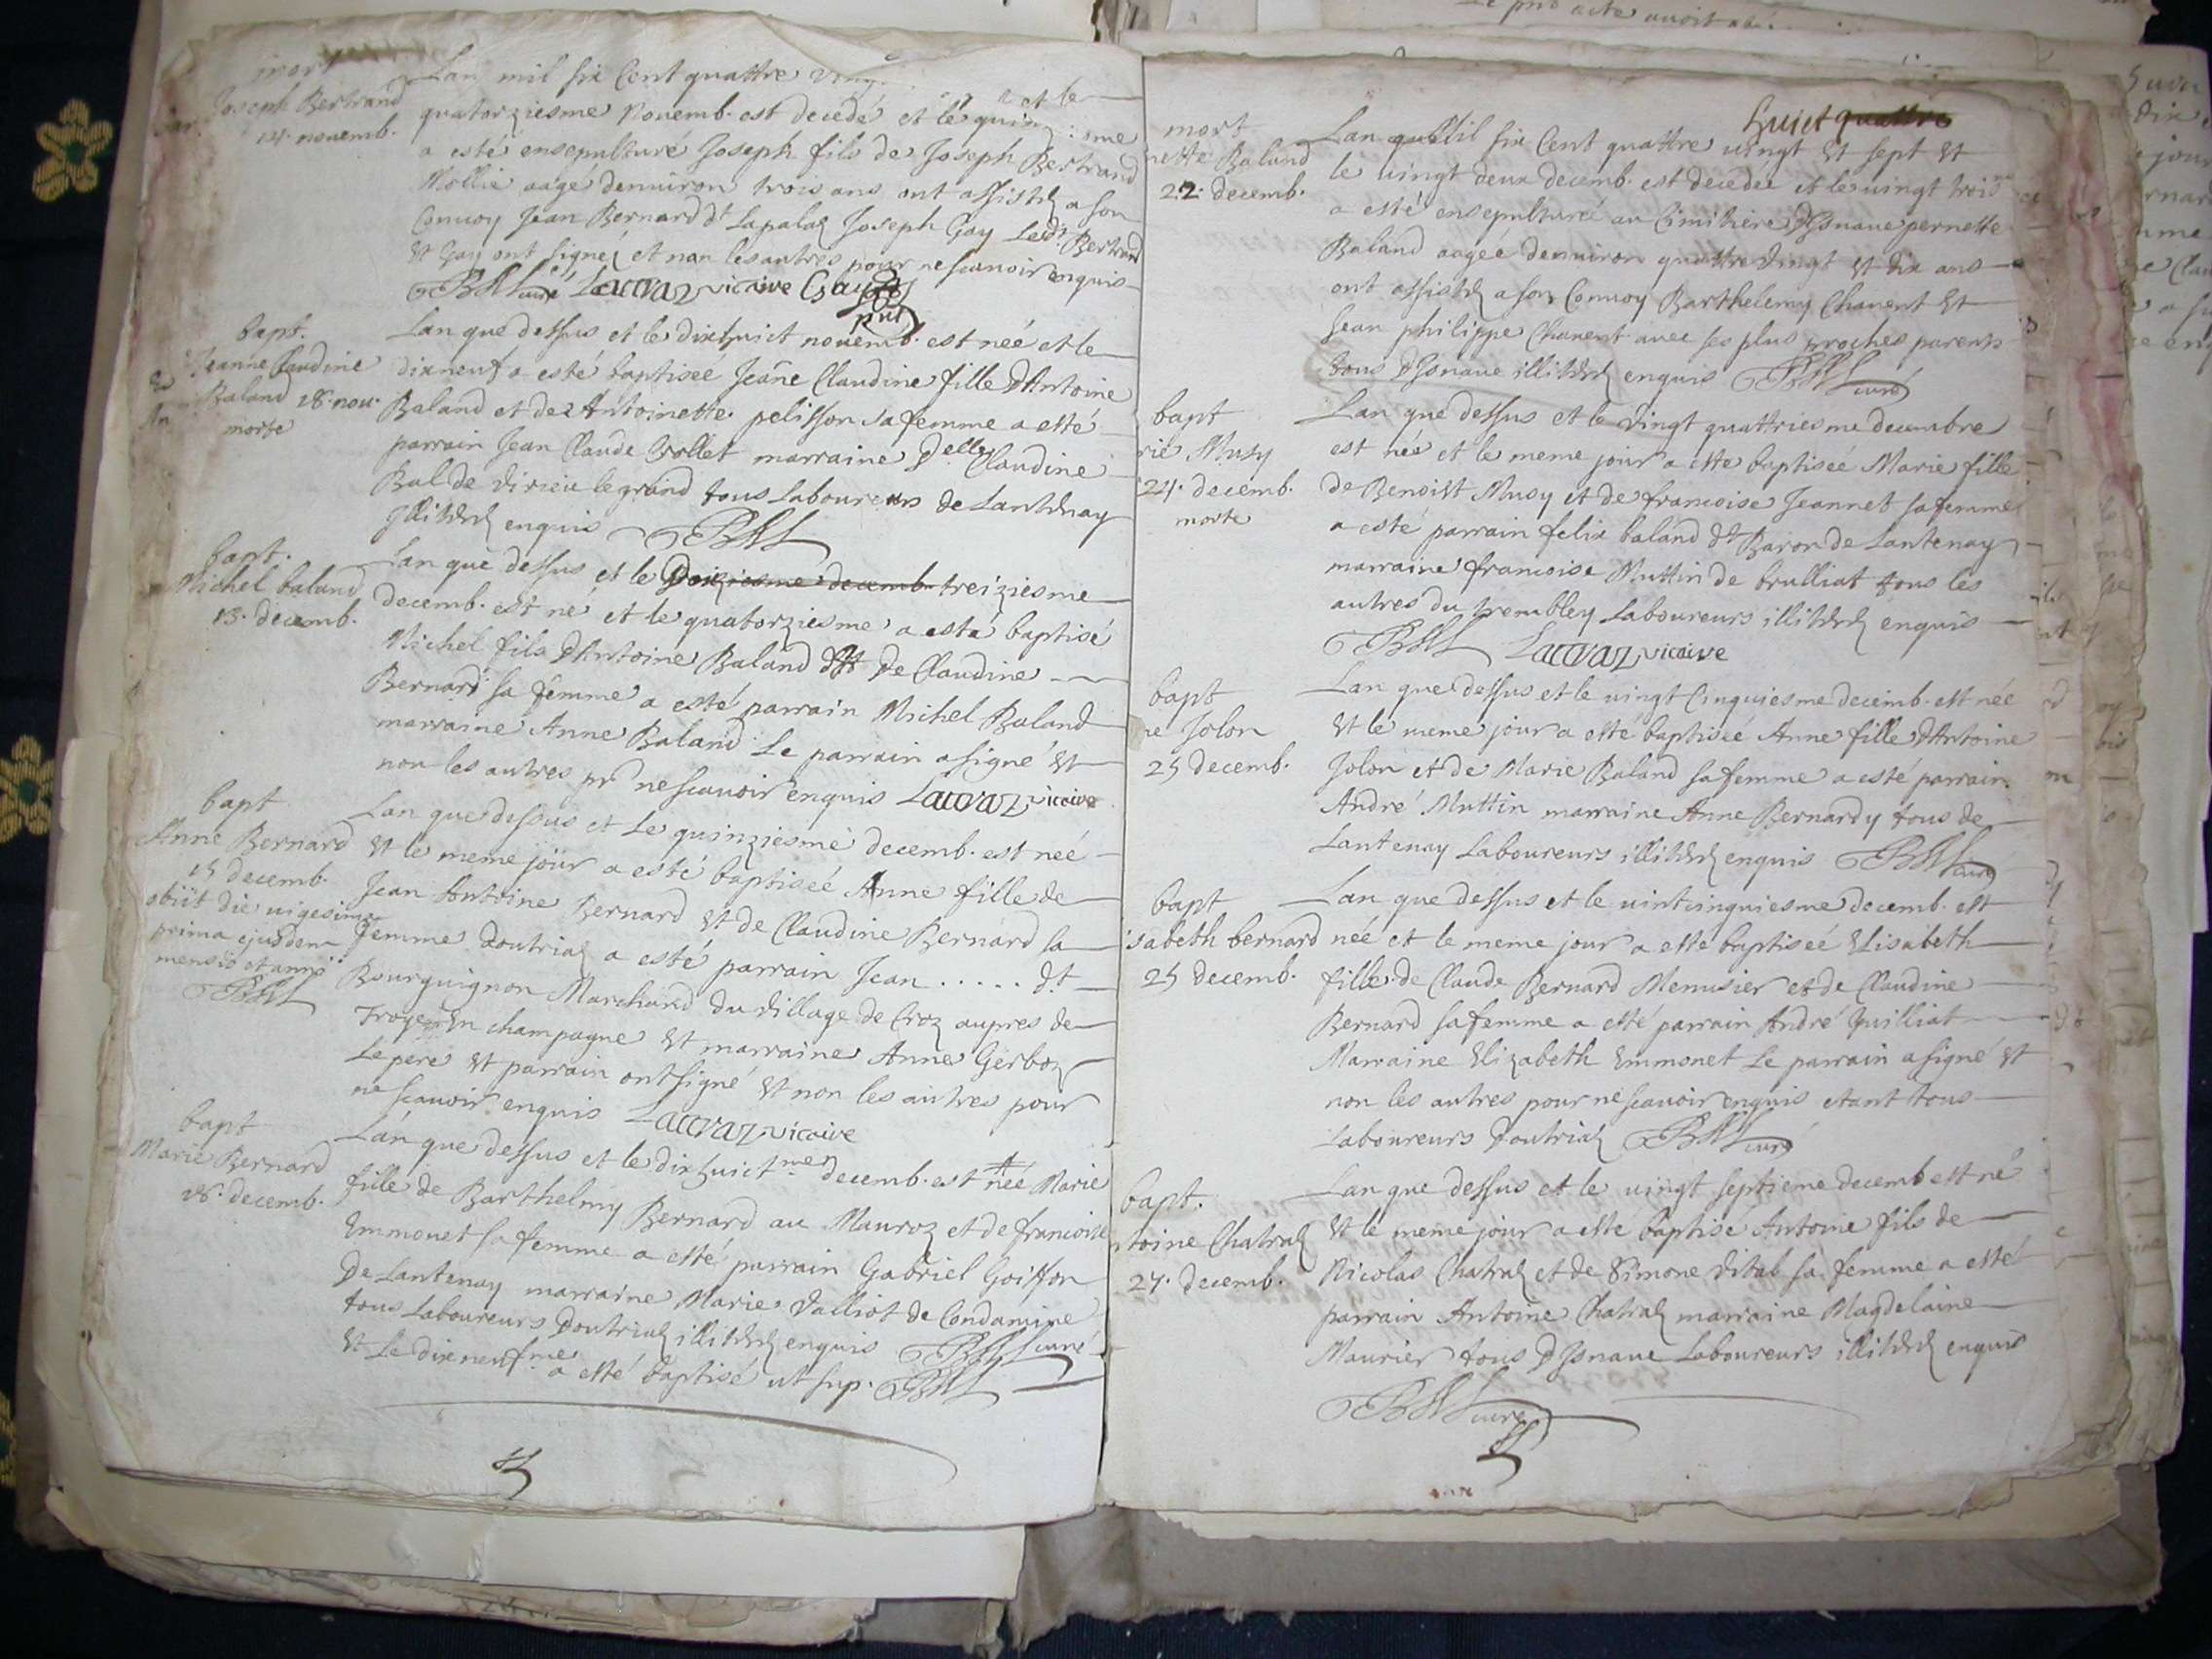 mort
Joseph Bertrand
14. novemb.
Lan mil six Cent quattre
quatorziesme Novemb. est decedé et le
a esté ensepulturé Joseph fils de Joseph Bertrand
Mollie aagé denuiron trois ans ont assisté a son
Conuoy Jean Bernard dt Lapalaz Joseph Gay Led. Bertrand
et Gay ont signéz et non les autres pour ne scauoir enquis
curé Lacraz vicaire Gay
bapt.
Jeanne Claudine
Baland 18. nou.
morte
Lan que dessus et le dixhuict nouemb. est née et le
dixneuf a esté baptiseé Jeane Claudine fille D'Antoine
Baland et de Antoinette pelisson sa femme a esté
parrain Jean Claude Vollet marraine Delle Claudine
Bal de Virieu le grand tous Laboureurs de Lantenay
enquis
bapt.
Michel baland
13. decemb.
Lan que dessus et le Doiziesme decemb. treiziesme
decemb. est né et le quatorziesme a esté baptisé
Michel fils D'Antoine Baland et De Claudine
Bernard sa femme a esté parrain Michel Baland
marraine Anne Baland Le parrain a signé et
non les autres pr ne scauoir enquis Lacraz vicaire
bapt
Anne Bernard
15 decemb.
obiit die uigesima
prima ejusdem
mensis et anni
Lan que dessus et Le quinziesme decemb. est neé
et le meme jour a esté baptiseé Anne fille de
Jean Antoine Bernard et de Claudine Bernard sa
femme Doutriaz a esté parrain Jean ..... dt
Bourguignon Marchand du village de Croz aupres de
Troyes En champagne et marraine Anne Gerboz
Le pere et parrain ont signé et non les autres pour
ne scauoir enquis Lacraz vicaire
bapt
Marie Bernard
18. decemb.
Lan que dessus et le dixhuictme decemb. est née Marie
fille de Barthelmy Bernard au Mauroz et de francoise
Emmonet sa femme a esté parrain Gabriel Goiffon
De Lantenay marraine Marie Valliot de Condamine
tous Laboureurs Doutriaz enquis curé
et Le dixneufme a esté baptisé ut sup.
huict quattre
mort
nette Baland
22. decemb.
Lan six Cent quattre uingt et sept et
le uingt deux decemb. est decedeé et le uingt trois
a esté ensepultureé au Cimitiere D'Isnaue pernette
Baland aageé denuiron quattre Vingt et dix ans
ont assisté a son Conuoy Barthelemy Chauent et
Jean philippe Chauent auec ses plus proches parents
tous D'Isnaue enquis curé
bapt
rie Musy
24. decemb.
morte
Lan que dessus et le Vingt quattriesme decembre
est neé et le meme jour a esté baptiseé Marie fille
de Benoist Musy et de francoise Jeannet sa femme
a esté parrain felix baland dt Baron de Lantenay
marraine francoise Muttin de brulliat tous les
autres du trembley Laboureurs enquis
Lacraz vicaire
bapt
ne Jolon
25 decemb.
Lan que dessus et le uingt Cinquiesme decemb. est neé
et le meme jour a esté baptiseé Anne fille D'Antoine
Jolon et de Marie Baland sa femme a esté parrain
André Muttin marraine Anne Bernardy tous de
Lantenay Laboureurs enquis curé
bapt
isabeth bernard
25 decemb.
Lan que dessus et le uintcinquiesme decemb. est
née et le meme jour a esté baptiseé Elisabeth
fille de Claude Bernard Menusier et de Claudine
Bernard sa femme a esté parrain André Juilliat
Marraine Elizabeth Emmonet Le parrain a signé et
non les autres pour ne scauoir enquis etant tous
Laboureurs Doutriaz curé
bapt.
toine Chatraz
27. decemb.
Lan que dessus et le uingt septieme decemb est né
et le meme jour a esté baptisé Antoine fils de
Nicolas Chatraz et de Simone Vital sa femme a esté
parrain Antoine Chatraz marraine Magdelaine
Maurier tous D'Isnaue Laboureurs enquis
curé